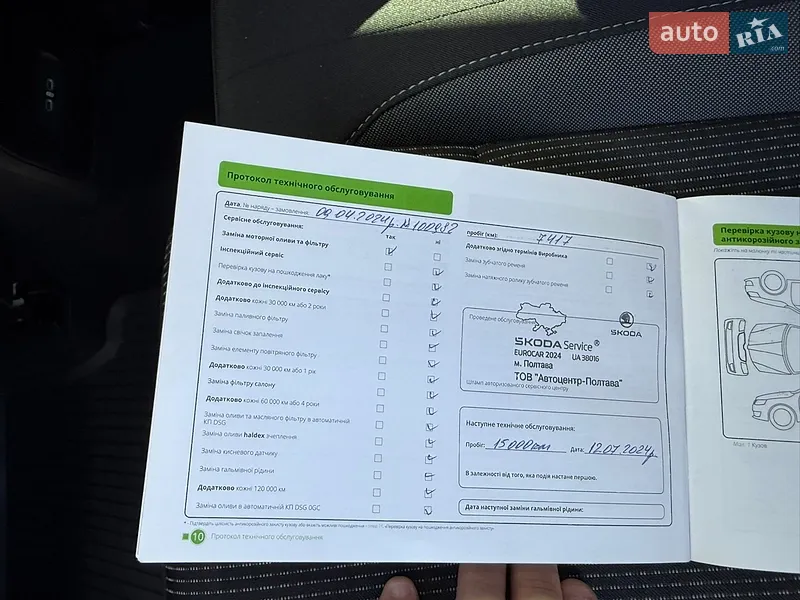 auto RIA .com
Протокол технічного обслуговування
Дата, № наряду – замовлення: 09.04.2024р. №100932
пробіг (км): 7417
Сервісне обслуговування:
так
ні
Заміна моторної оливи та фільтру
Інспекційний сервіс
Перевірка кузову на пошкодження лаку*
Додатково до інспекційного сервісу
Додатково кожні 30 000 км або 2 роки
Заміна паливного фільтру
Заміна свічок запалення
Заміна елементу повітряного фільтру
Додатково кожні 30 000 км або 1 рік
Заміна фільтру салону
Додатково кожні 60 000 км або 4 роки
Заміна оливи та масляного фільтру в автоматичній
КП DSG
Заміна оливи haldex зчеплення
Заміна кисневого датчику
Заміна гальмівної рідини
Додатково кожні 120 000 км
Заміна оливи в автоматичній КП DSG 0GC
Додатково згідно термінів Виробника
Заміна зубчатого ременя
Заміна натяжного ролику зубчатого ременя
Проведене обслуговування
SKODA
SKODA Service®
EUROCAR 2024 UA 38016
м. Полтава
ТОВ "Автоцентр-Полтава"
Штамп авторизованого сервісного центру
Наступне технічне обслуговування:
Пробіг: 15000км Дата: 12.07.2024р
В залежності від того, яка подія настане першою.
Дата наступної заміни гальмівної рідини:
10 Протокол технічного обслуговування
Перевірка кузову н
антикорозійного з
Мал. 1 Кузов